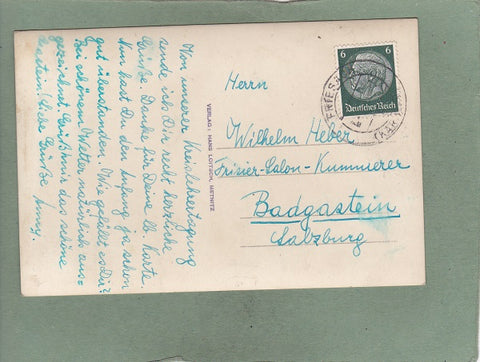 Von unserer Kreisschertagung
sende ich Dir recht herzliche
Grüße. Danke für Deine lb. Karte.
Nun hast Du den Anfang ja schon
gut überstanden. Wie gefällt es Dir?
Bei schönem Wetter natürlich aus=
gezeichnet. Grüß mir das schöne
Gastein! Liebe Grüße
VERLAG: HANS LOTTERL, METNITZ
6 6
Deutsches Reich
FRIESA
(KÄR
Herrn
Wilhelm Heber
Frisier-Salon-Kummerer
Badgastein
Salzburg